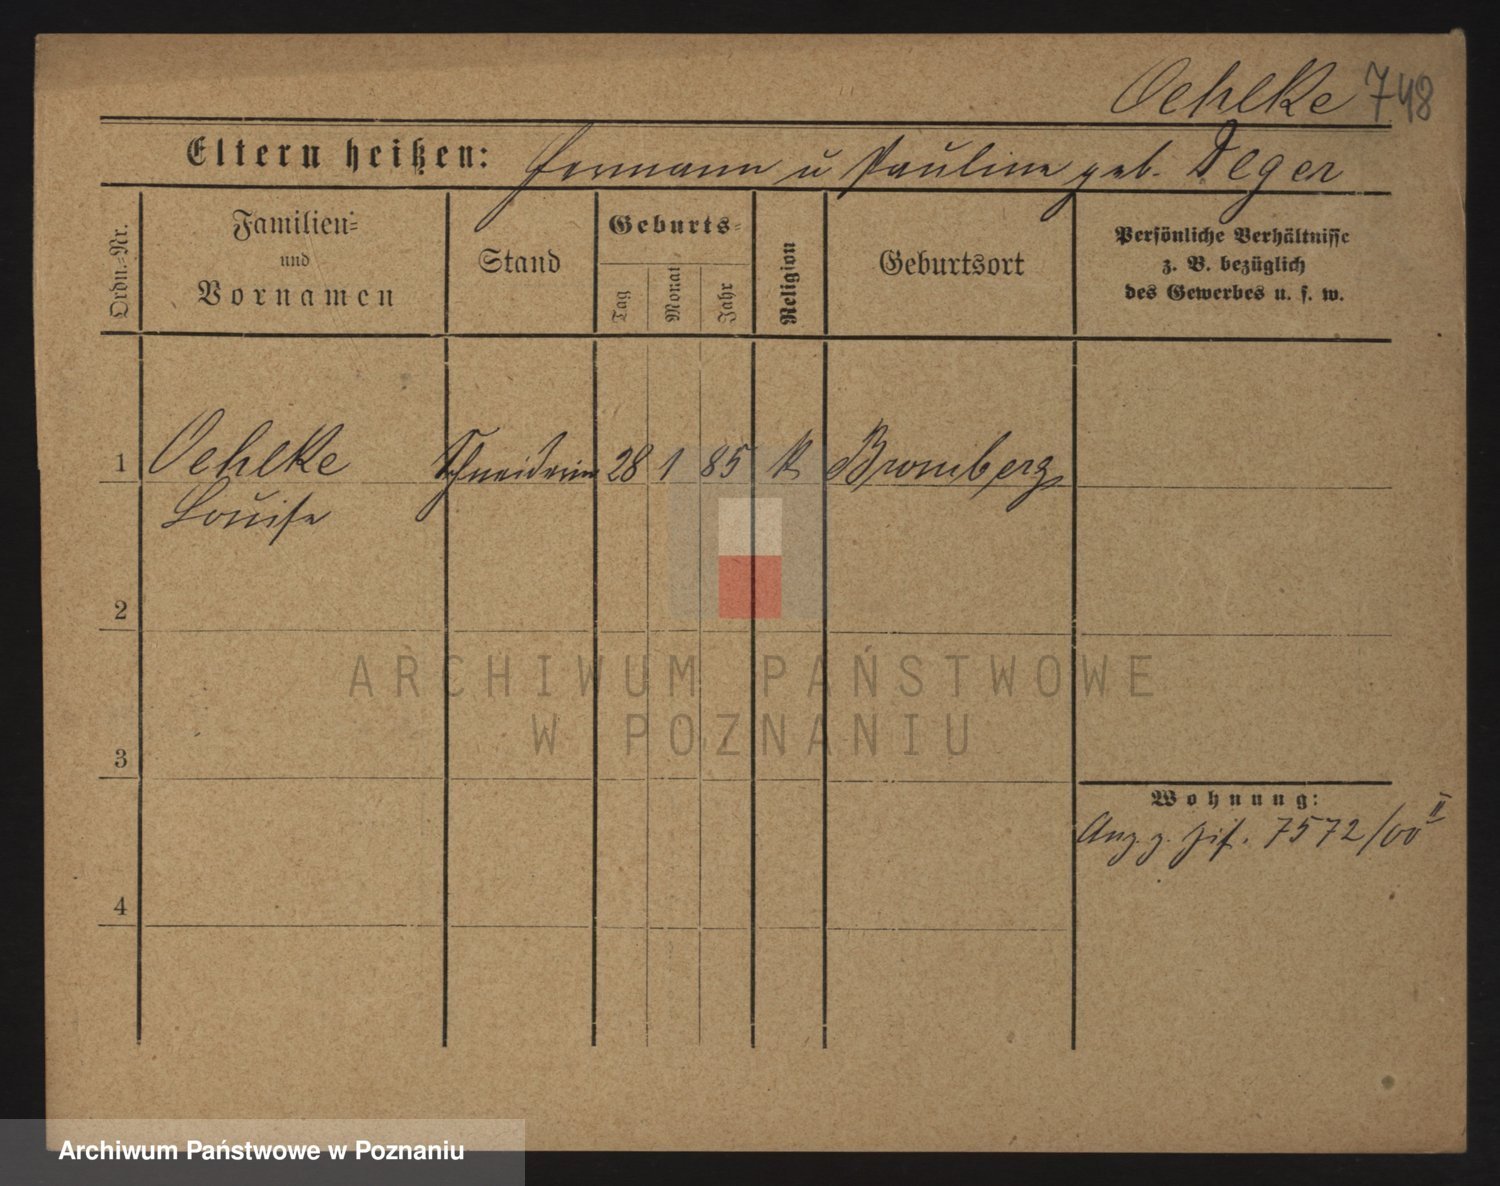 Oehlke 748
Eltern heißen: Hermann u Pauline geb. Deger
Ordn.-Nr.
Familien-
und
Vornamen
Stand
Geburts-
Tag
Monat
Jahr
Religion
Geburtsort
Persönliche Verhältnisse
z. B. bezüglich
des Gewerbes u. s. w.
1 Oehlke Schneiderin 28 1 85 k Bromberg
Louise
2
3
4
Wohnung:
7572/00 II
ARCHIWUM PAŃSTWOWE
W POZNANIU
Archiwum Państwowe w Poznaniu